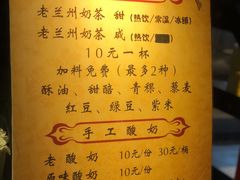 老兰州奶茶 甜(热饮/常温/冰镇)
老兰州奶茶 咸(热饮/
10元一杯
加料免费(最多2种)
酥油、甜醅、青稞、藜麦
红豆、绿豆、紫米
手工酸奶
老酸奶 10元/份 30元/桶
原味酸奶 10元/份